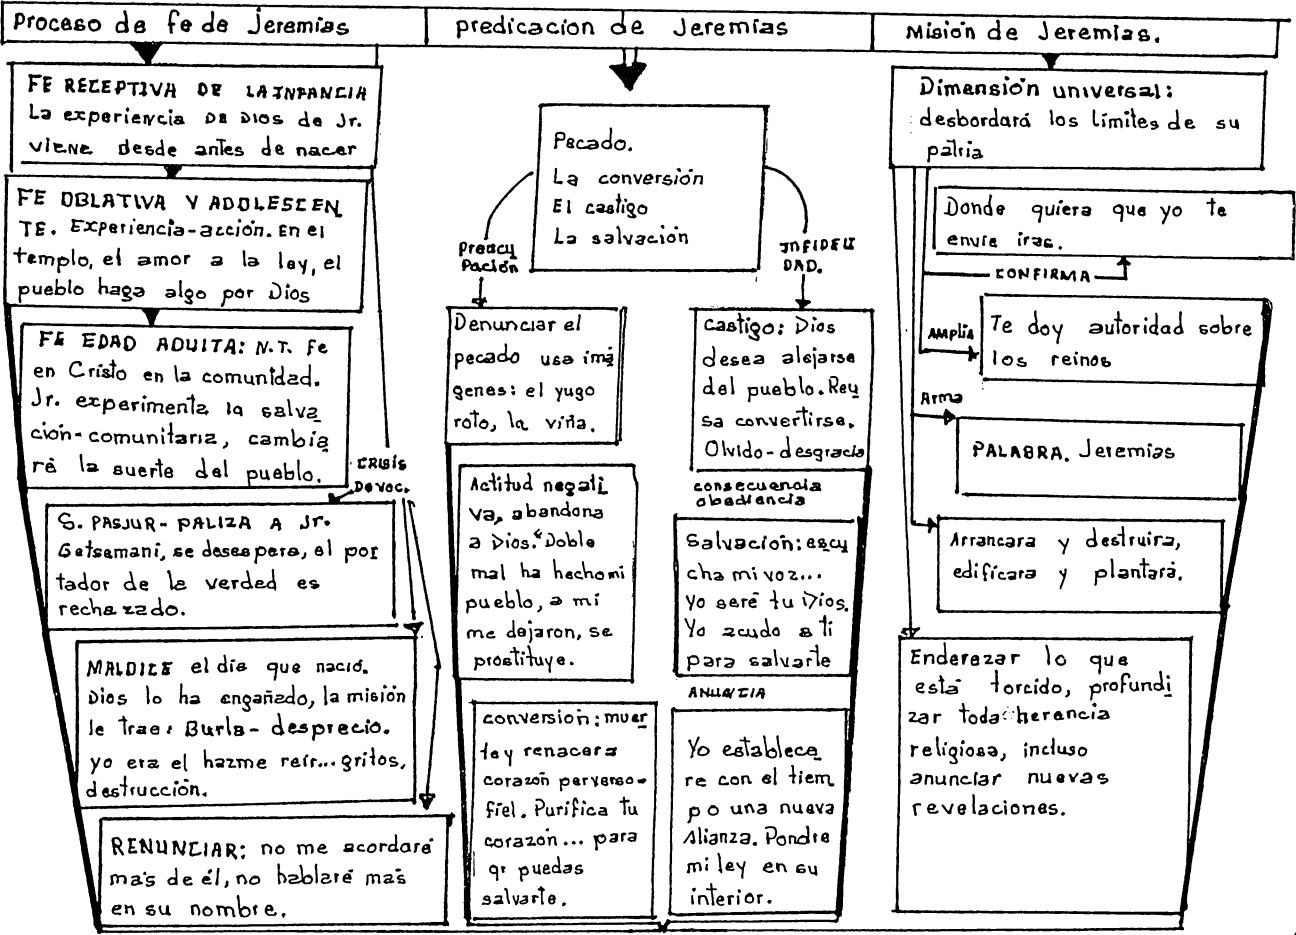 Proceso de fe de Jeremías
FE RECEPTIVA DE LA INFANCIA
La experiencia DE DIOS de Jr.
VIENE desde antes de nacer
FE OBLATIVA Y ADOLESCEN
TE. Experiencia-acción. En el
templo, el amor a la ley, el
pueblo haga algo por Dios
FE EDAD ADULTA: N.T. Fe
en Cristo en la comunidad.
Jr. experimenta la salva
ción-comunitaria, cambia
ré la suerte del pueblo.
CRISIS
DE VOC.
S. PASJUR-PALIZA A Jr.
Getsemaní, se desespera, el por
tador de la verdad es
rechazado.
MALDICE el día que nació.
Dios lo ha engañado, la misión
le trae: Burla-desprecio.
yo era el hazme reír...gritos,
destrucción.
RENUNCIAR: no me acordaré
más de él, no hablaré más
en su nombre.
predicación de Jeremías
Pecado.
La conversión
El castigo
La salvación
Preocu
Pación
INFIDELI
DAD.
Denunciar el
pecado usa imá
genes: el yugo
roto, la viña.
Actitud negati
va, abandona
a Dios."Doble
mal ha hecho mi
pueblo, a mí
me dejaron, se
prostituye.
conversión: muer
te y renacera
corazón perverso-
fiel. Purifica tu
corazón... para
qr puedas
salvarte.
castigo: Dios
desea alejarse
del pueblo. Reu
sa convertirse.
Olvido-desgracia
consecuencia
obediencia
Salvación: escu
cha mi voz...
Yo seré tu Dios.
Yo acudo a ti
para salvarte
ANUNCIA
Yo establece
re con el tiem
po una nueva
Alianza. Pondre
mi ley en su
interior.
Misión de Jeremías.
Dimensión universal:
desbordará los límites de su
patria
Donde quiera que yo te
envíe iras.
CONFIRMA
Amplía
Te doy autoridad sobre
los reinos
Arma
PALABRA. Jeremías
Arrancara y destruira,
edificara y plantará.
Enderezar lo que
está torcido, profundi
zar toda herencia
religiosa, incluso
anunciar nuevas
revelaciones.